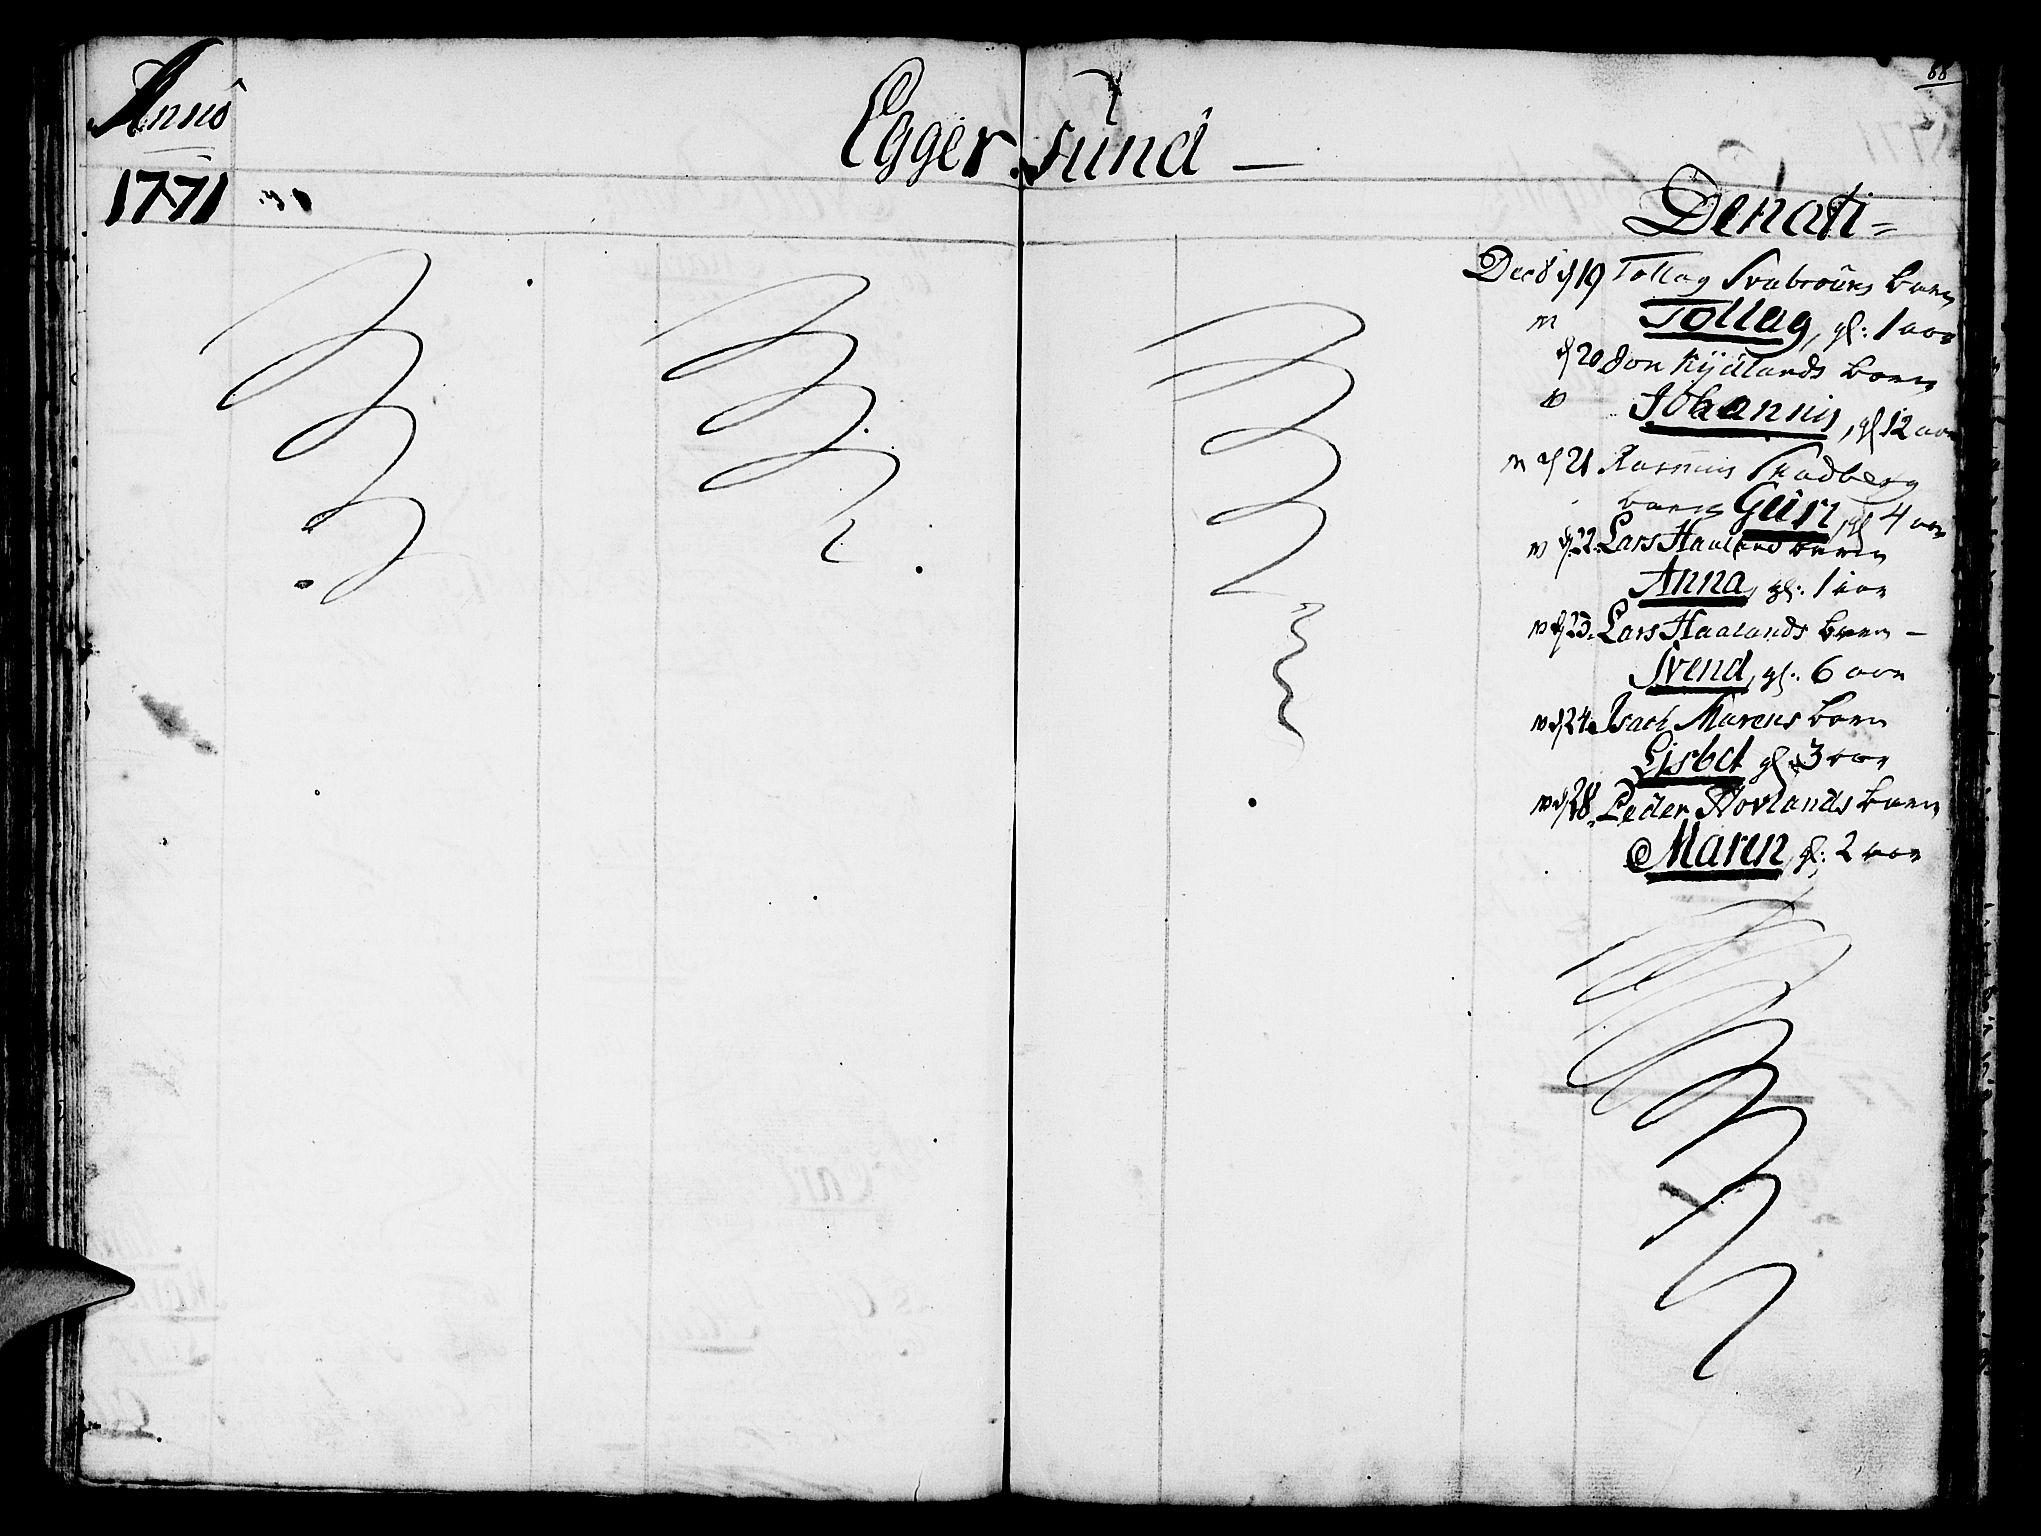 68
Anno
Egger-sund —
1771
Denati =
Decbr d 19 Tollag Svabroûns barn
Tollag, gl: 1 aar
d 20 Jon Kydlands barn
Johannis, gl 12 aar
d 21 Rasmus Skadberg
barn Guri, gl 4 aar
d 22. Lars Haaland barn
Anna, gl: 1 aar
d 23. Lars Haalands barn —
Svend, gl: 6 aar
d 24. Isach Marens barn
Lisbet gl 3 aar
d 28. Peder Hovlands barn
Maren, gl: 2 aar